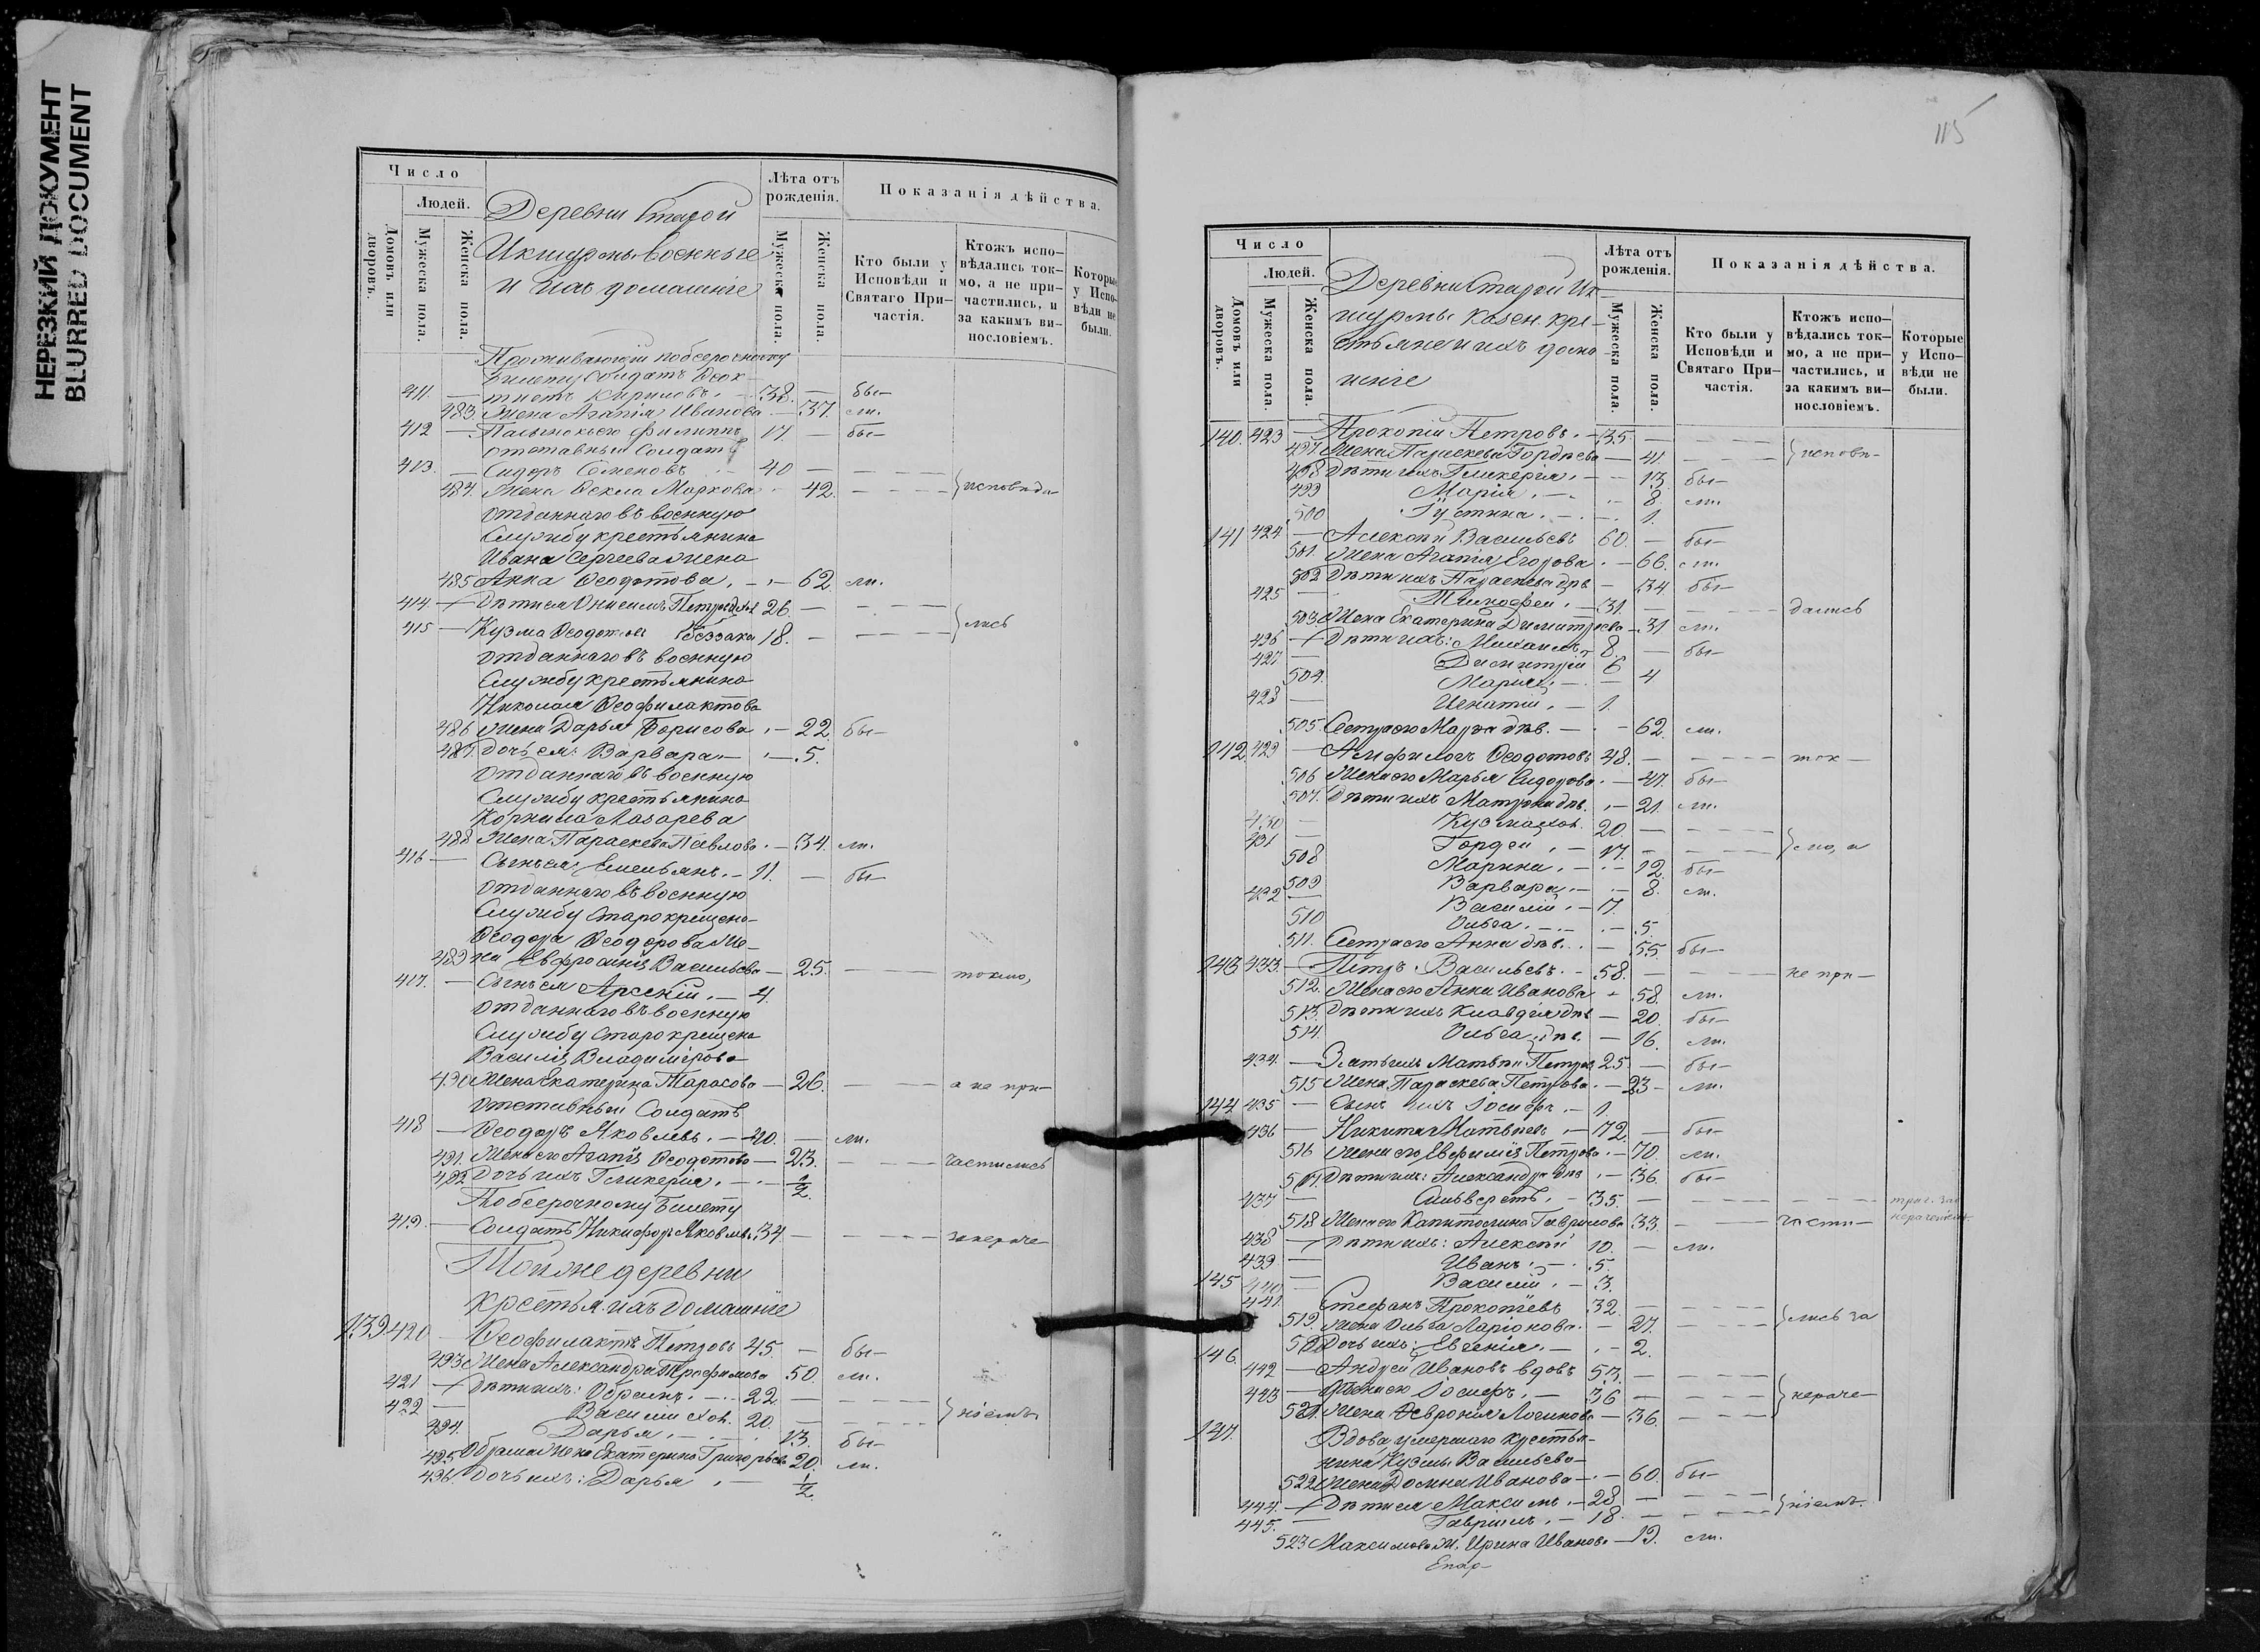 НЕРЕЗКИЙ ДОКУМЕНТ
BLURRED DOCUMENT
Число
Людей.
Домовъ или дворовъ.
Мужеска пола.
Женска пола.
Деревни Старой
Икшурмы военные
и ихъ домашніе
Лѣта отъ рожденія.
Мужеска пола.
Женска пола.
Показанія дѣйства.
Кто были у Исповѣди и Святаго Причастія.
Ктожъ исповѣдались токмо, а не причастились, и за какимъ винословіемъ.
Которые у Исповѣди не были.
Проживающій по безсрочному
билету Солдатъ Ѳеок-
411. — тистъ Кириловъ. — 38. — бы-
483. Жена Агапія Иванова — 37. ли.
412 — Филиппъ 17. — бы-
отставный Солдатъ
413. — Сидоръ Семеновъ — 40 —
484. Жена Ѳекла Маркова — 42. исповѣда-
отданнаго въ военную
Службу крестьянина
Ивана Сергеева жена
485 Анна Ѳеодотова. — 62 ли.
414. — Дѣти ея Онисимъ Петровъ хол 26 —
415 — Кузма Ѳеодотовъ 18. — лись
отданнаго въ военную
Службу крестьянина
Николая Ѳеофилактова
486 Жена Дарья Борисова. — 22. бы-
487. дочь ея: Варвара — 5.
отданнаго въ военную
Службу крестьянина
Корнила Лазарева
488 Жена Параскева Павлова. — 34. ли.
416 — Сынъ ея Емельянъ. — 11. — бы-
отданнаго въ военную
Службу старокрещена
Ѳеодора Ѳеодорова Же-
489 на Евфросинія Васильева — 25. — токмо,
417. — Сынъ ея Арсеній. — 4.
отданнаго въ военную
Службу Старокрещена
Василія Владимірова
490 Жена Екатерина Тарасова — 26. — а не при-
отставный Солдатъ
418 — Ѳеодоръ Яковлевъ. — 40. — ли.
491. Жена его Агапія Ѳеодотова — 23. — частились
492. Дочь ихъ Гликерія. — 1/2.
По безсрочному билету
419. — Солдатъ Никифоръ Яковлевъ 34. — за нераче-
Той же деревни
крестья. ихъ домашніе
139 420 — Ѳеофилактъ Петровъ 45. — бы-
493 Жена Александра Трофимова 50. ли.
421 — Дѣти ихъ: Абрамъ. — 22 —
422 — Василій хол. 20. — ніемъ
494. Дарья. — 13. бы-
495 Абрама Жена Екатерина Григорьева 20. ли.
496. Дочь ихъ: Дарья. — 1/2.
115
Число
Людей.
Домовъ или дворовъ.
Мужеска пола.
Женска пола.
Деревни Старой Ик-
шурмы казен. кре-
стьяне и ихъ дома-
шніе
Лѣта отъ рожденія.
Мужеска пола.
Женска пола.
Показанія дѣйства.
Кто были у Исповѣди и Святаго Причастія.
Ктожъ исповѣдались токмо, а не причастились, и за какимъ винословіемъ.
Которые у Исповѣди не были.
140. 423 — Прокопій Петровъ. — 35. —
497 Жена Параскева Гордѣева — 41. — исповѣ-
498 Дѣти ихъ Гликерія. — 13. бы-
499 Марія. — 8. ли.
500 Іустина. — 1.
141 424 — Алексѣй Васильевъ 60. — бы-
501. Жена Агапія Егорова. — 66. ли.
502 Дѣти ихъ Параскева дѣв. — 34 бы-
425 — Тимофей. — 31. — дались
503 Жена Екатерина Димитріева — 31 ли.
426 — Дѣти ихъ: Михаилъ 8. — бы-
427 — Димитрій 6
504. Марія. — 4
428 — Игнатій. — 1.
505. Сестра его Марѳа дѣв. — 62. ли.
142 429 — Амфилогъ Ѳеодотовъ 48. — ток-
506 Жена его Марья Сидорова. — 47. бы-
507. Дѣти ихъ Матрона дѣв. — 21. ли.
430 — Кузма хол. 20. —
431 Гордей. — 17. — мо, а
508 Марина. — 12. бы-
509 Варвара. — 8. ли.
432 — Василій. — 7.
510 Ольга. — 5.
511. Сестра его Анна дѣв. — 55. бы-
143 433. — Петръ Васильевъ. — 58. — не при-
512. Жена его Анна Иванова — 58. ли.
513. Дѣти ихъ Клавдія дѣв — 20. бы-
514. Ольга дѣв. — 16. ли.
434. — Зять ихъ Матвѣй Петровъ 25. — бы-
515 Жена Параскева Петрова. — 23 — ли.
144 435 — Сынъ ихъ Іосифъ. — 1.
436 — Никита Матвѣевъ. — 72. — бы-
516 Жена его Евфимія Петрова. — 70. ли.
517. Дѣти ихъ: Александра дѣв. — 36. бы-
437 — Сильверстъ. — 35. —
518 Жена его Капитолина Гаврилова 33. — части-
438 — Дѣти ихъ: Алексѣй 10. — ли.
439 — Иванъ. — 5.
145 440 — Василій. — 3.
441. Стефанъ Прокопіевъ 32. —
519. Жена Ольга Ларіонова. — 27. — лись за
520 Дочь ихъ: Евгенія. — 2.
146.
442 — Андрей Ивановъ вдовъ 57. —
443 — Іосифъ. — 36 — нераче-
521. Жена Ѳевронія Логинова — 36. —
147. Вдова умершаго крестья-
нина Кузьмы Васильева
522 Жена Домна Иванова — 60. бы-
444. — Дѣти ея Максимъ. — 28 —
445. — Гавріилъ. — 18. — ніемъ.
523 Максимова ж. Ирина Иванова — 19. ли.
Епар-